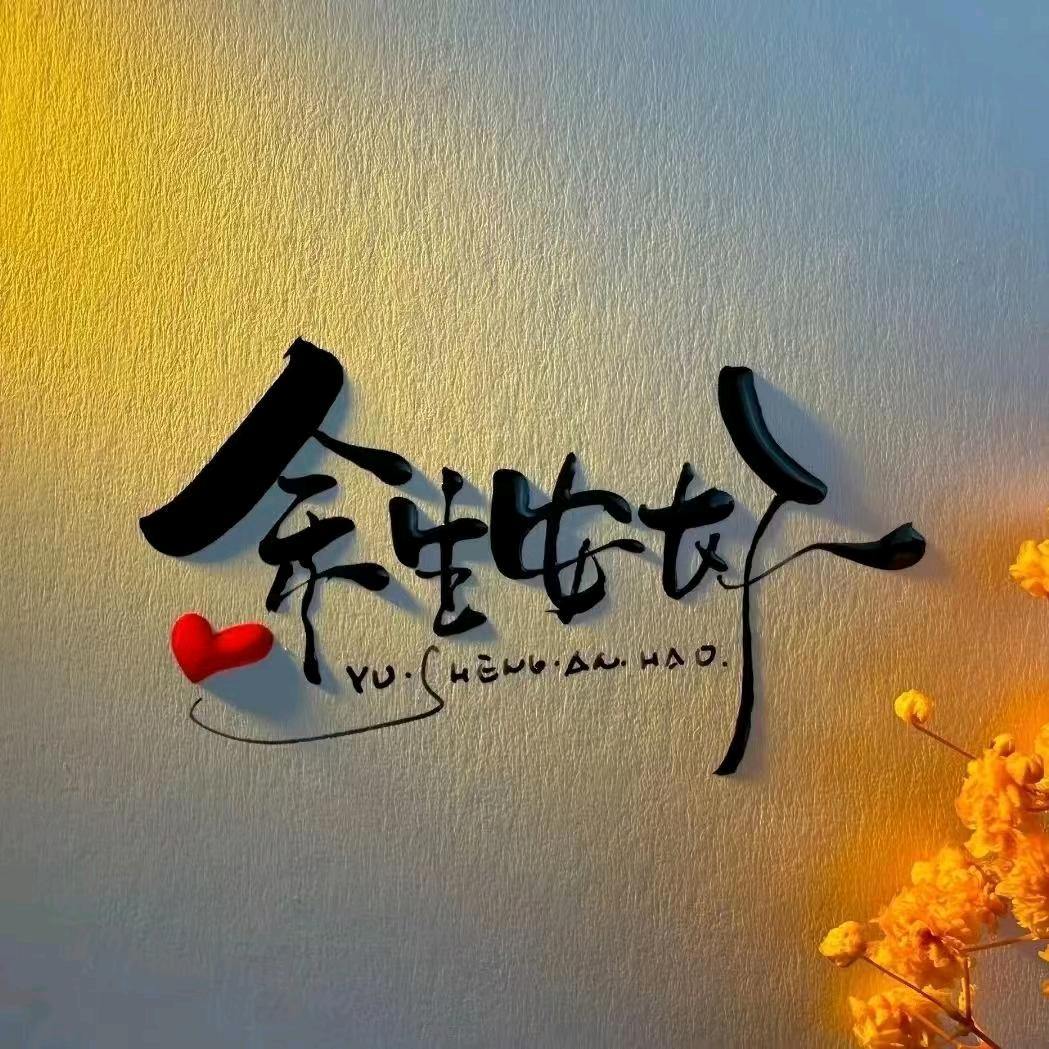 余生安好
YU·SHENG·AN·HAO.